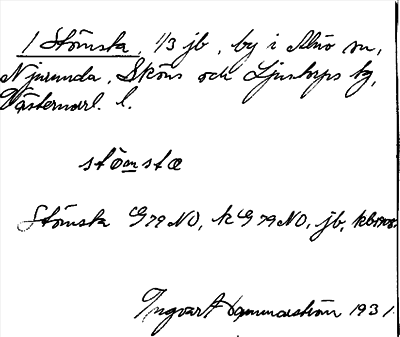 1 Stömsta, 1/3 jb, by i Alnö sn,
Njurunda, Sköns och Ljustorps tg,
Västernorl. l.
stömstæ
Stömsta G 79 NO, k G 79 NO, jb,
Ingvar Hammarström 1931.